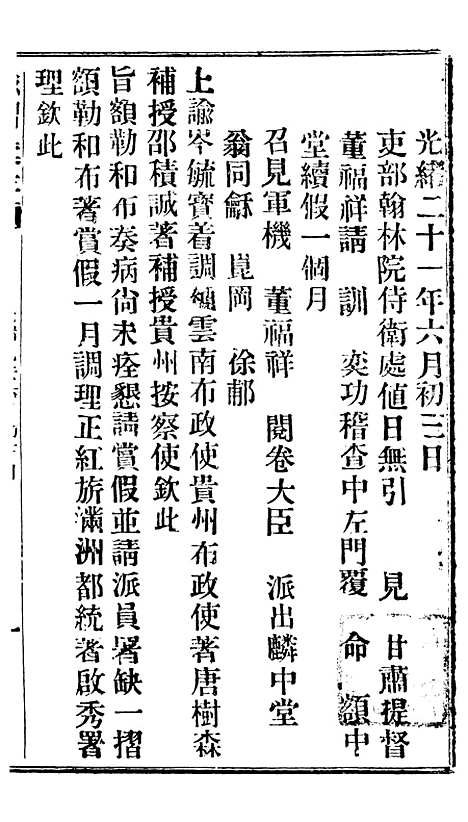 光緒二十一年六月初三日
吏部翰林院侍衛處値日無引 見 甘肅提督
董福祥請 訓 奕功稽查中左門覆 命 額中
堂續假一個月
召見軍機 董福祥 閱卷大臣 派出麟中堂
翁同龢 崑岡 徐郙
上諭岑毓寶着調補雲南布政使貴州布政使著唐樹森
補授邵積誠著補授貴州按察使欽此
旨額勒和布奏病尙未痊懇請賞假並請派員署缺一摺
額勒和布著賞假一月調理正紅旂滿洲都統著啟秀署
理欽此